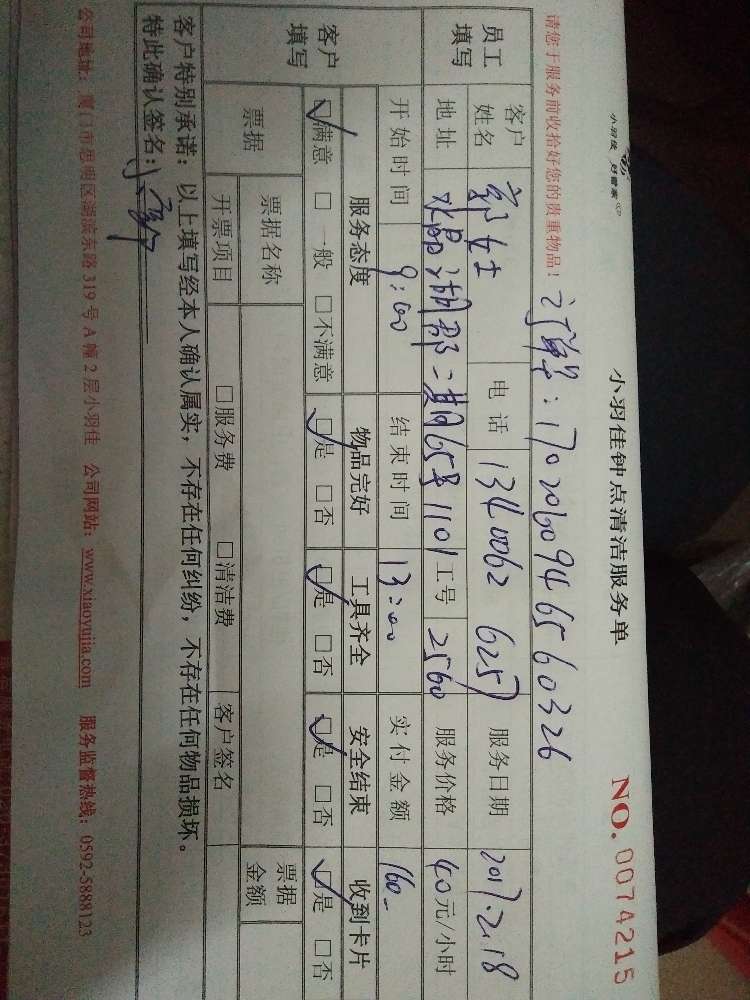 小羽佳 好管家
小羽佳钟点清洁服务单
NO. 0074215
请您于服务前收拾好您的贵重物品!
订单号:17020609465603 26
员工填写 客户姓名 郭女士 电话 134 0062 6257 服务日期 2017.2.18
地址 水晶湖郡二期65号1101 工号 2560 服务价格 40元/小时
开始时间 9:00 结束时间 13:00 实付金额 160-
客户填写 服务态度 物品完好 工具齐全 安全结束 收到卡片
☑满意 □一般 □不满意 ☑是 □否 ☑是 □否 ☑是 □否 ☑是 □否
票据 票据名称 票据金额
开票项目 □服务费 □清洁费 客户签名
客户特别承诺:以上填写经本人确认属实,不存在任何纠纷,不存在任何物品损坏。
特此确认签名:
公司地址:厦门市思明区湖滨东路319号A幢2层小羽佳 公司网站:www.xiaoyujia.com 服务监督热线:0592-5888123